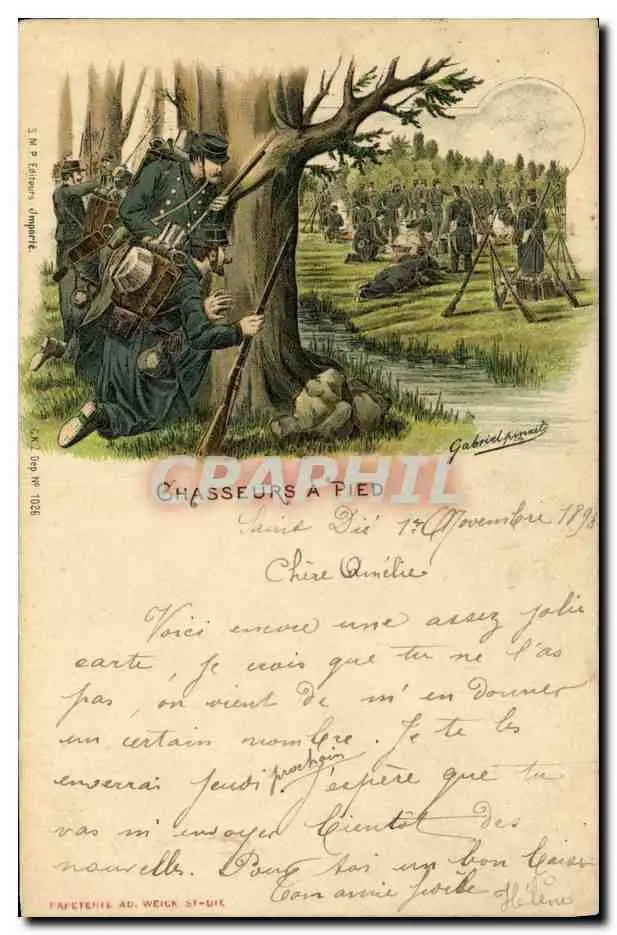 S.M.P. Editeurs (Importé.
G.K.Z. Dep Nº 1026
Gabriel
CHASSEURS À PIED
CRAPHIL
Saint Dié 1er Novembre 1898
Chère Amélie
Voici encore une assez jolie
carte, Je crois que tu ne l'as
pas, on vient de m'en donner
un certain nombre. Je te les
enverrai jeudi prochain. J'espère que tu
vas m'envoyer bientôt des
nouvelles. Pour toi un bon baiser
Ton amie Hélène
PAPETERIE AD. WEICK ST-DIÉ